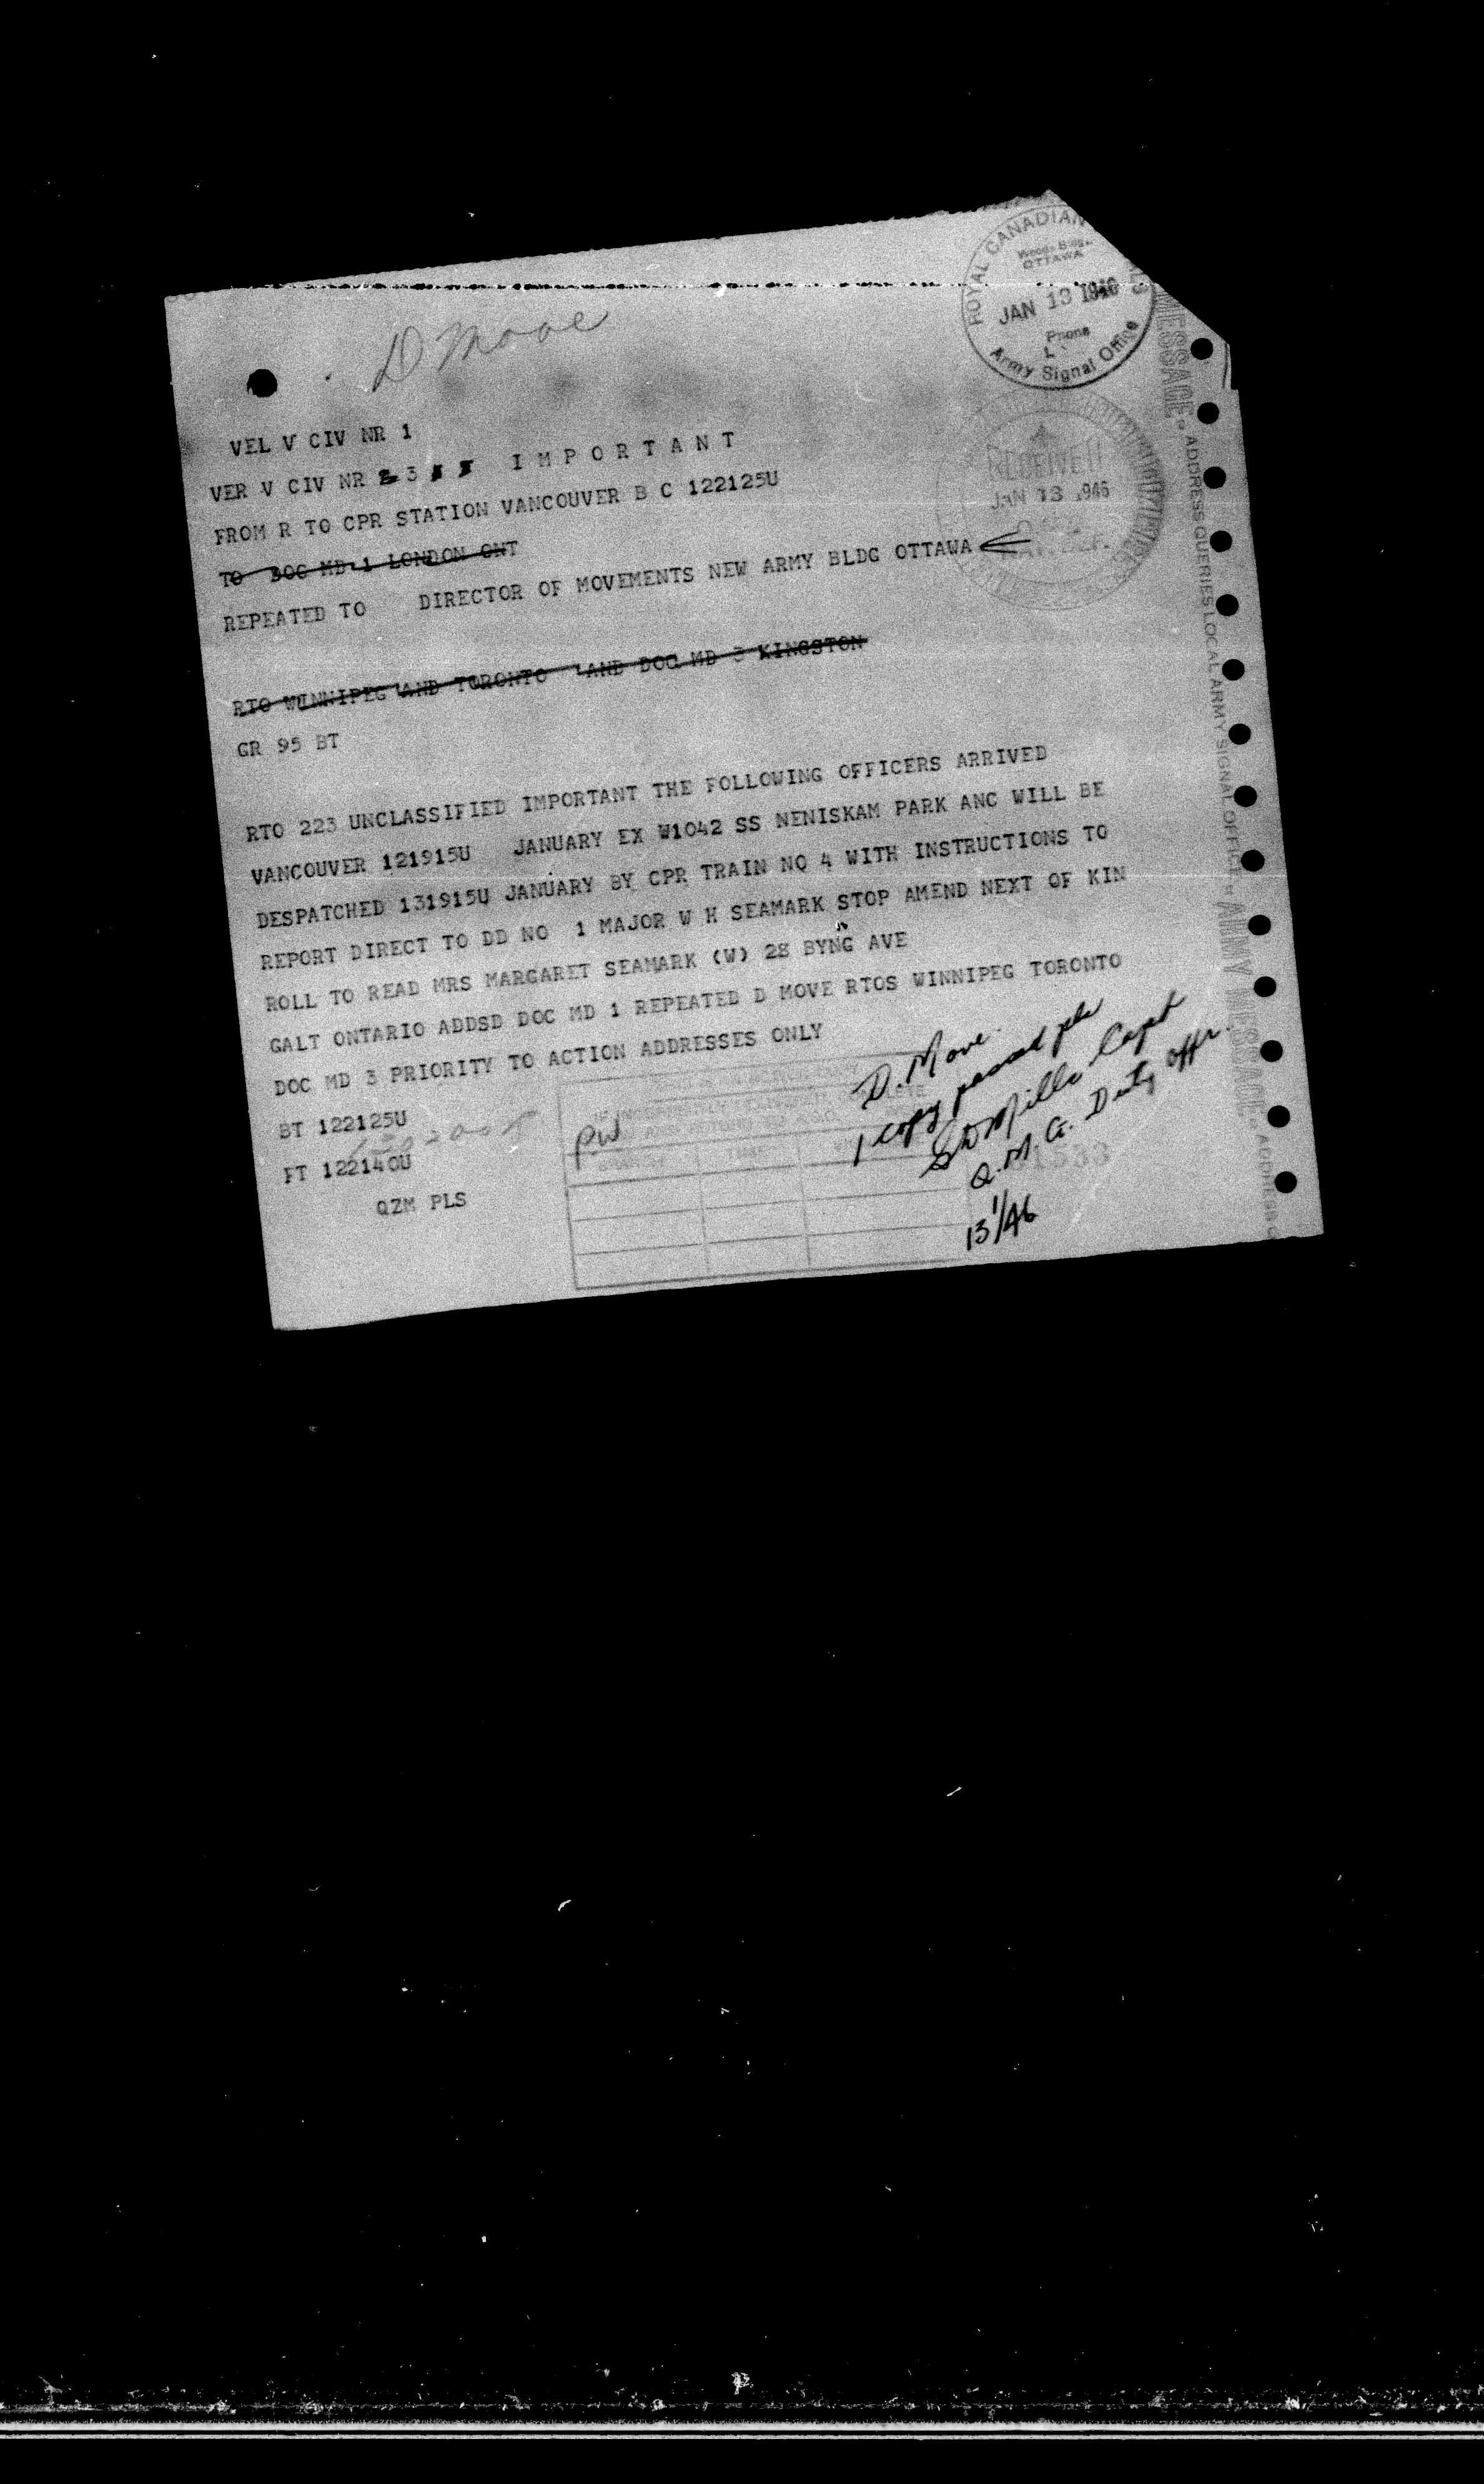 ROYAL CANADIAN
Woods Bldg.
OTTAWA
JAN 13 1946
Phone
Army Signal Office
D Move
VEL V CIV NR 1
VER V CIV NR 3 I M P O R T A N T
FROM R TO CPR STATION VANCOUVER B C 122125U
TO DOC MD 1 LONDON ONT
REPEATED TO DIRECTOR OF MOVEMENTS NEW ARMY BLDG OTTAWA
RTO WINNIPEG AND TORONTO AND DOC MD 3 KINGSTON
GR 95 BT
RTO 223 UNCLASSIFIED IMPORTANT THE FOLLOWING OFFICERS ARRIVED
VANCOUVER 121915U JANUARY EX W1042 SS NENISKAM PARK ANC WILL BE
DESPATCHED 131915U JANUARY BY CPR TRAIN NO 4 WITH INSTRUCTIONS TO
REPORT DIRECT TO DD NO 1 MAJOR W H SEAMARK STOP AMEND NEXT OF KIN
ROLL TO READ MRS MARGARET SEAMARK (W) 28 BYNG AVE
GALT ONTARIO ADDSD DOC MD 1 REPEATED D MOVE RTOS WINNIPEG TORONTO
DOC MD 3 PRIORITY TO ACTION ADDRESSES ONLY
BT 122125U
FT 122140U
QZM PLS
RECEIVED
JAN 13 1946
PW
D. Move.
1 copy passed pls
Mills Capt
Q.M.G. Duty offr.
13/1/46
MESSAGE
ADDRESS QUERIES LOCAL ARMY SIGNAL OFFICE
ARMY MESSAGE